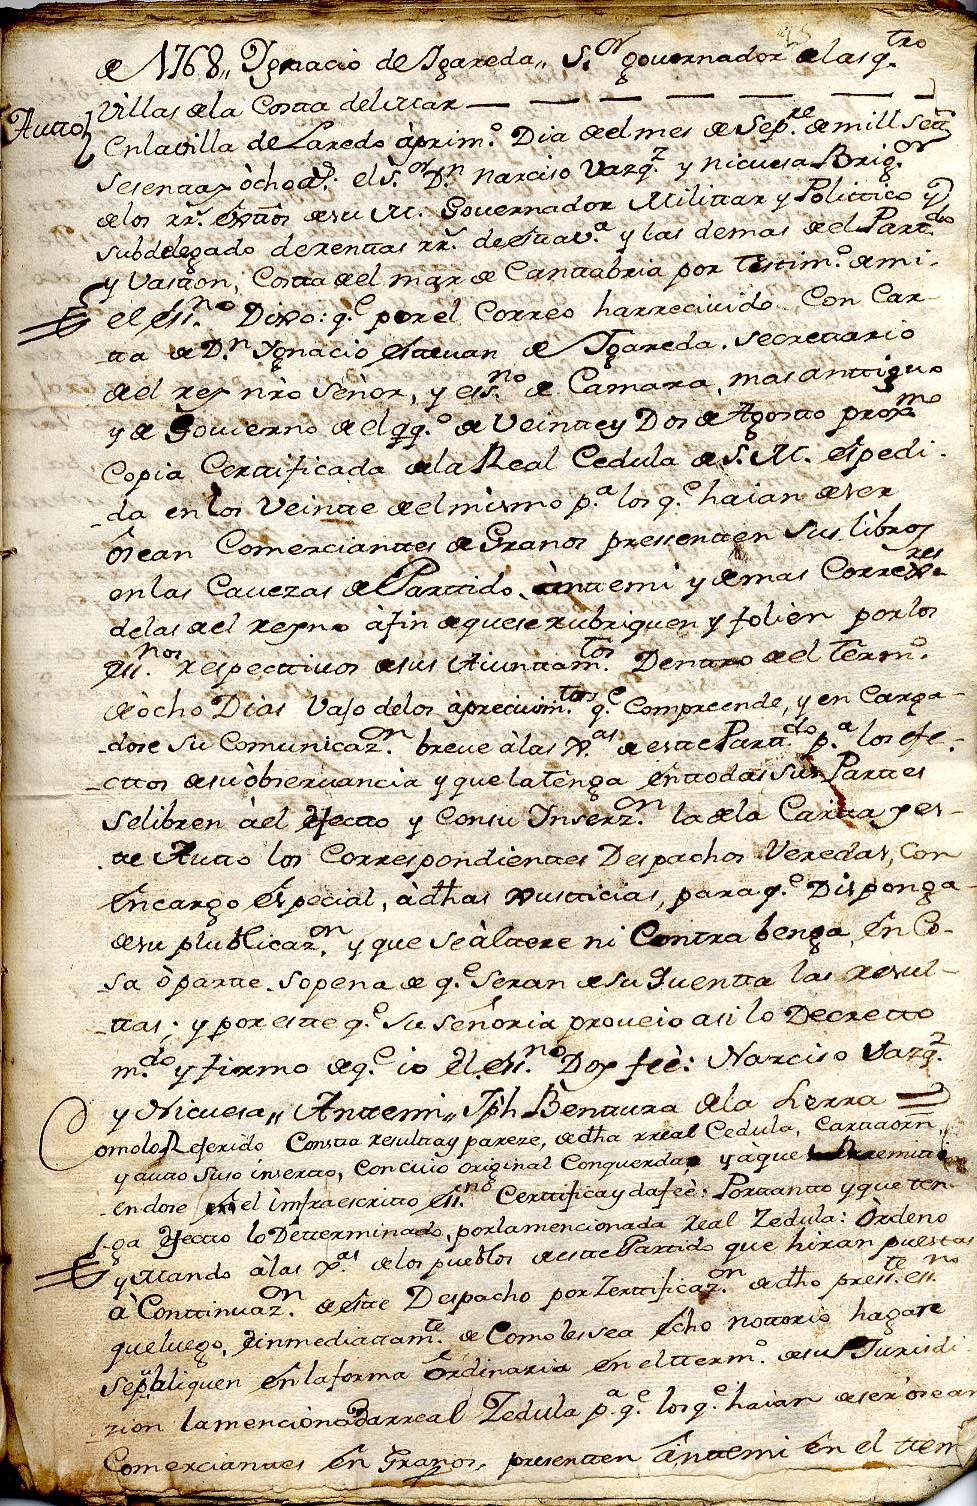 de 1768,, Ygnacio de Ygareda,, S.or governador delas q.tro
Villas de la Costa del Mar
Autto
Enlavilla de Laredo àprim.o Dia del mes de Sep.re de mill Set.s
sesenta y òcho a.s el S.or D.n Narciso Vazq.z y nicuesa Brig.or
delos rr.s Extos de su M. Governador Militar y Polittico y
subdelegado derenttas rr.s de esta v.a y las demas del Part.do
y Vaston, Costa del mar de Cantabria por testim.o de mi
el ess.no Dixo: q.e por el Correo harrecivido Con Car-
tta de D.n Ygnacio estevan de Ygareda, secretario
del rey nrò Señor, y ess.no de Camara, mas anttiguo
y de Govierno del q.o de Veintey Dos de Agosto prox.mo
Copia Certificada dela Real Cedula de S. M. espedi-
da en los Veinte del mismo p.a los q.e haian deser
òsean Comerciantes de Granos pressenten sus libros
en las Cavezas de Parttido, antemi y demas Correx.res
delas del reyno àfin dequese rubriquen y folien por los
ess.nos respecttivos desus Aiuntam.tos Dentro del term.o
deòcho Dias vajo delos àpercivim.tos q.e Compreende, y en Carga-
dose su Comunicaz.on breve àlas Xas de este Partt.do p.a los efe-
cttos desuòbservancia y quelatenga en todas sus Partes
selibren àel efecto y Consu Inserz.on la dela Cartta y es-
te Autto los Correspondientes Despachos Veredas, Con
Encargo especial, àdhas Xusticias, para q.e Disponga
desu plublicaz.on y que seàltere ni Contrabenga, en Co-
sa òparte, sopena de q.e seran desu quentta las resul-
ttas; y por este q.e su señoria proveio asi lo Decretto
m.do y firmo deq.e io El ess.no Doy feè: Narciso Vazq.z
y Nicuesa,, Anttemi,, Jph Bentura dela Serra
Comolo Referido Consta resulttay pareze, dedha rreal Cedula, Cartaorn,
y autto suso insertto, Concuio original Conquerda, y àque remiti
endose el infraescritto ess.no Certtifica y dafeè: Portantto y que ten
ga efectto lo Determinado, porlamencionada real Zedula: Ordeno
y Mando àlas Xas delos pueblos deeste Partido que hiran puestas
à Conttinuaz.on de este Despacho por Zerttificaz.on de dho press.te ess.no
queluego, èinmediattam.te de Como lessea echo nottorio hagase
sepubliquen en la forma Ordinaria en el tterm.o desus Jurisdi
zion lamencionadarreal Zedula p.a q.e los q.e haian deser òsean
Comerciantes en Granos, presenten anttemi en el ttem